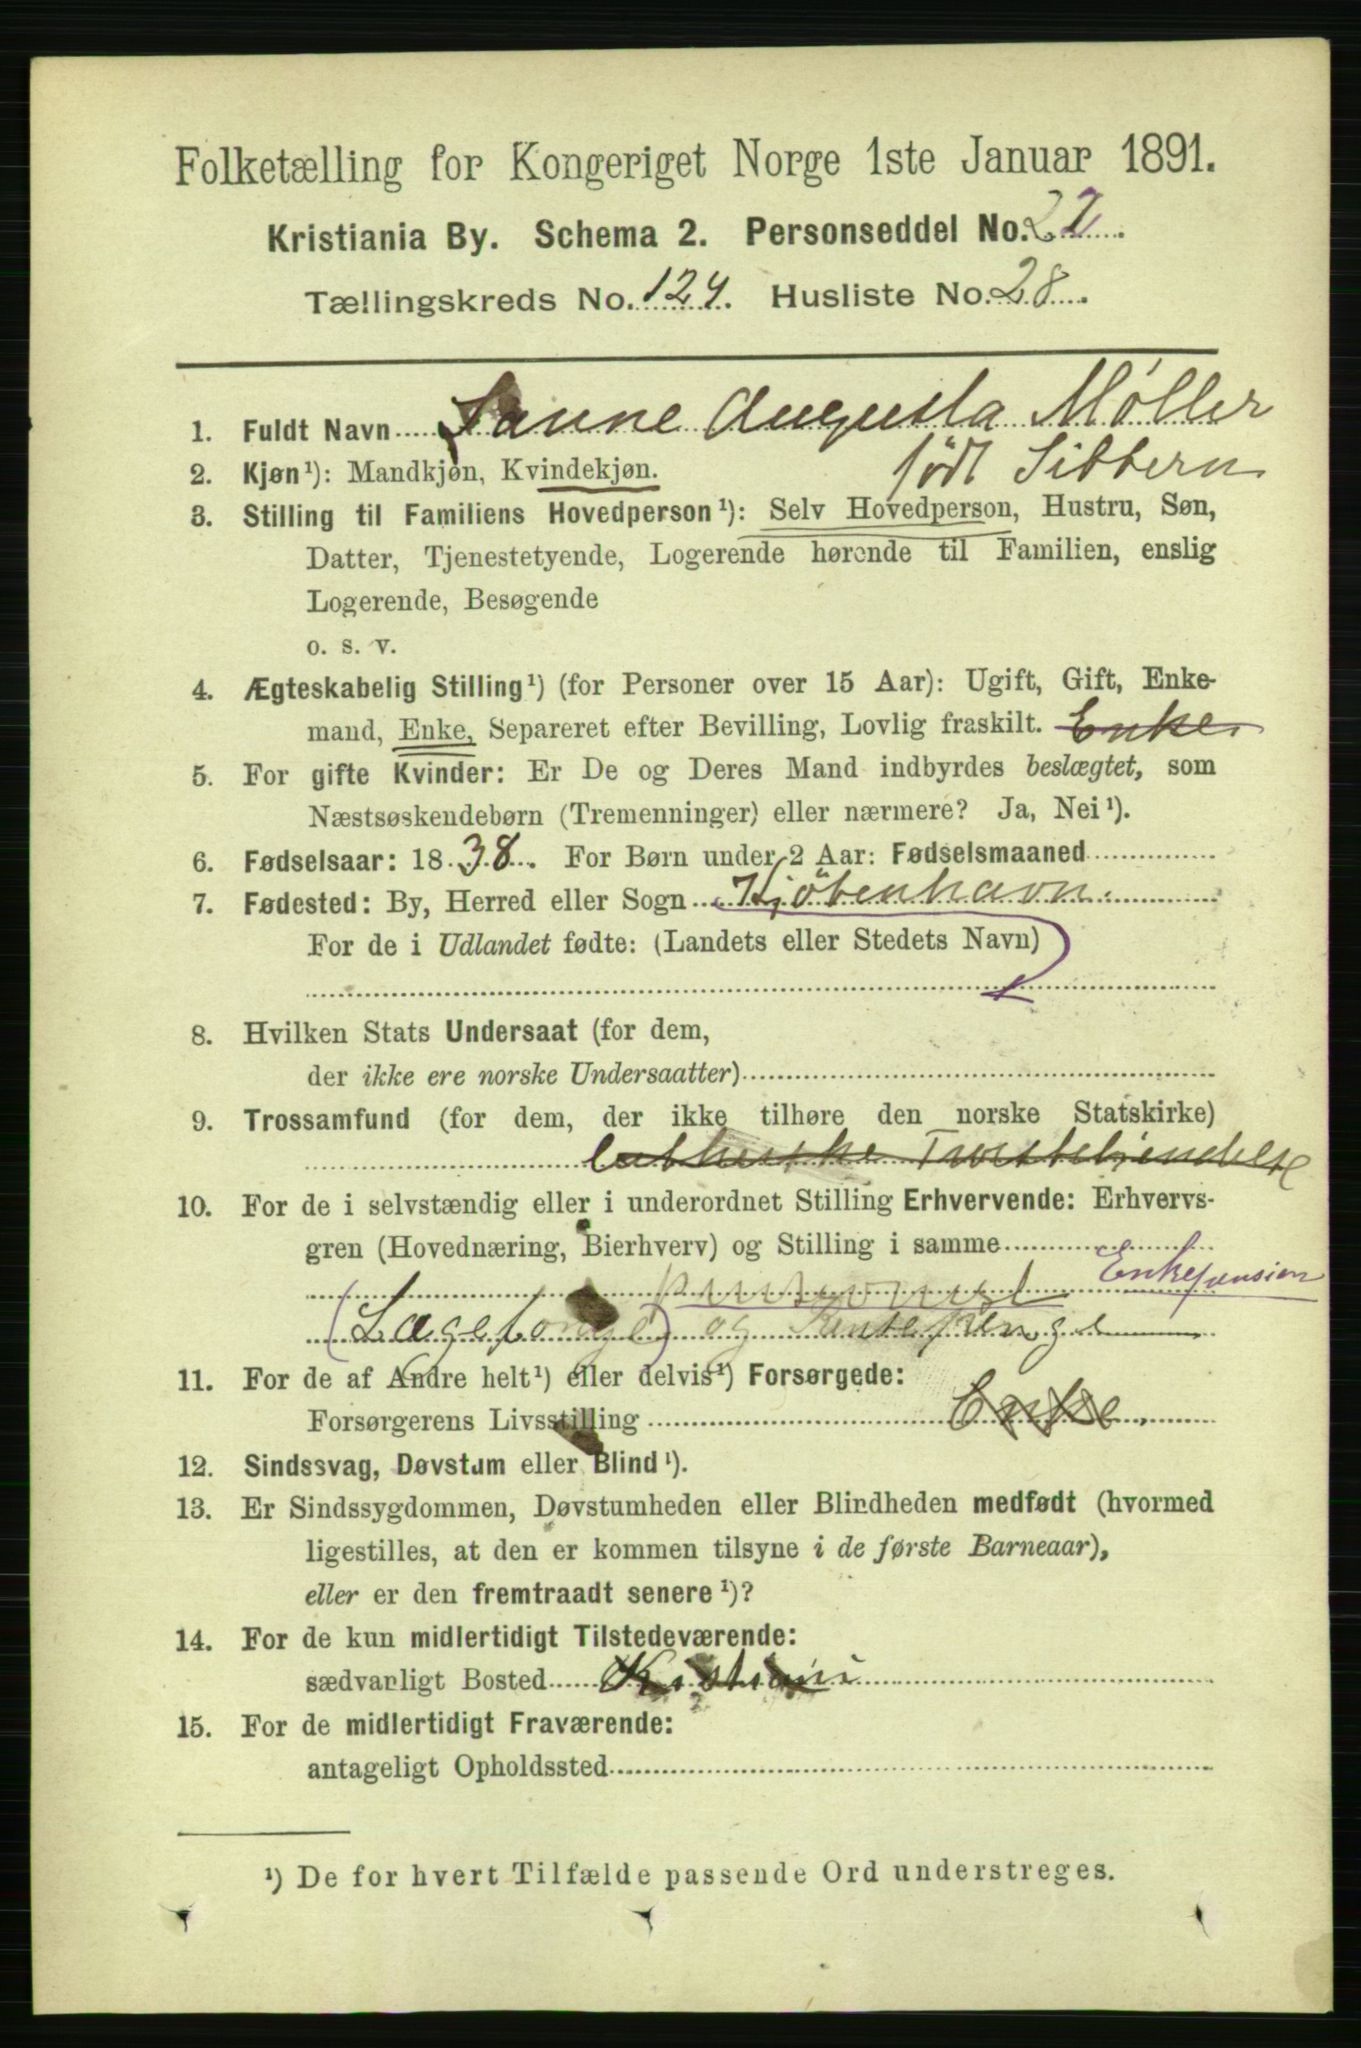 Folketælling for Kongeriget Norge 1ste Januar 1891.
Kristiania By. Schema 2. Personseddel No. 22
Tællingskreds No. 124. Husliste No. 28
1. Fuldt Navn Hanne Augusta Møller
født Sibbern
2. Kjøn¹): Mandkjøn, Kvindekjøn.
3. Stilling til Familiens Hovedperson¹): Selv Hovedperson, Hustru, Søn,
Datter, Tjenestetyende, Logerende hørende til Familien, enslig
Logerende, Besøgende
o. s. v.
4. Ægteskabelig Stilling¹) (for Personer over 15 Aar): Ugift, Gift, Enke-
mand, Enke, Separeret efter Bevilling, Lovlig fraskilt. Enke
5. For gifte Kvinder: Er De og Deres Mand indbyrdes beslægtet, som
Næstsøskendebørn (Tremenninger) eller nærmere? Ja, Nei¹).
6. Fødselsaar: 1838. For Børn under 2 Aar: Fødselsmaaned
7. Fødested: By, Herred eller Sogn Kjöbenhavn.
For de i Udlandet fødte: (Landets eller Stedets Navn)
8. Hvilken Stats Undersaat (for dem,
der ikke ere norske Undersaatter)
9. Trossamfund (for dem, der ikke tilhøre den norske Statskirke)
lutherske Troesbekjendelse
10. For de i selvstændig eller i underordnet Stilling Erhvervende: Erhvervs-
gren (Hovednæring, Bierhverv) og Stilling i samme
Enkepension
og Rentepenge
11. For de af Andre helt¹) eller delvis¹) Forsørgede:
Forsørgerens Livsstilling Enke.
12. Sindssvag, Døvstum eller Blind¹).
13. Er Sindssygdommen, Døvstumheden eller Blindheden medfødt (hvormed
ligestilles, at den er kommen tilsyne i de første Barneaar),
eller er den fremtraadt senere¹)?
14. For de kun midlertidigt Tilstedeværende:
sædvanligt Bosted Kristiani
15. For de midlertidigt Fraværende:
antageligt Opholdssted
¹) De for hvert Tilfælde passende Ord understreges.